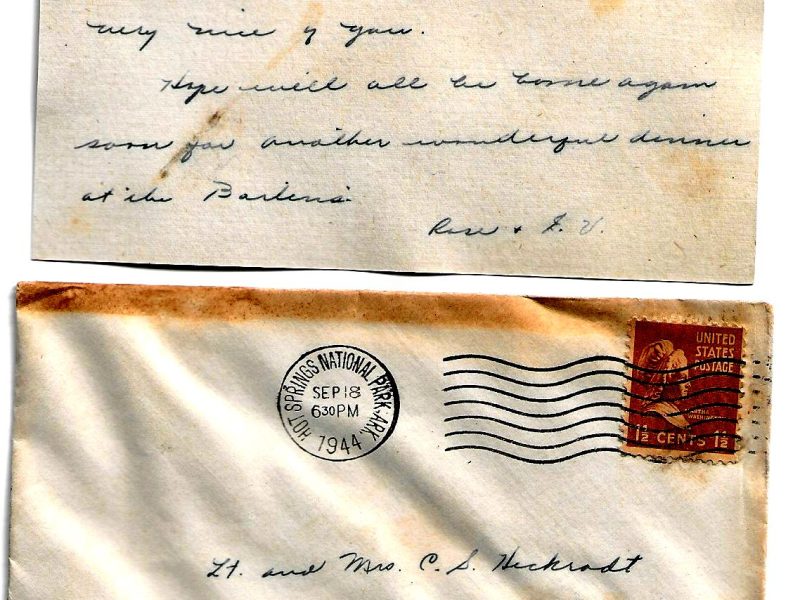 very nice of you.
Hope will all be home again
soon for another wonderful dinner
at the
Rose +
HOT SPRINGS NATIONAL PARK, ARK.
SEP 18
630PM
1944
UNITED
STATES
POSTAGE
MARTHA
WASHINGTON
1½ CENTS 1½
Lt. and Mrs. C. S. Heckrodt